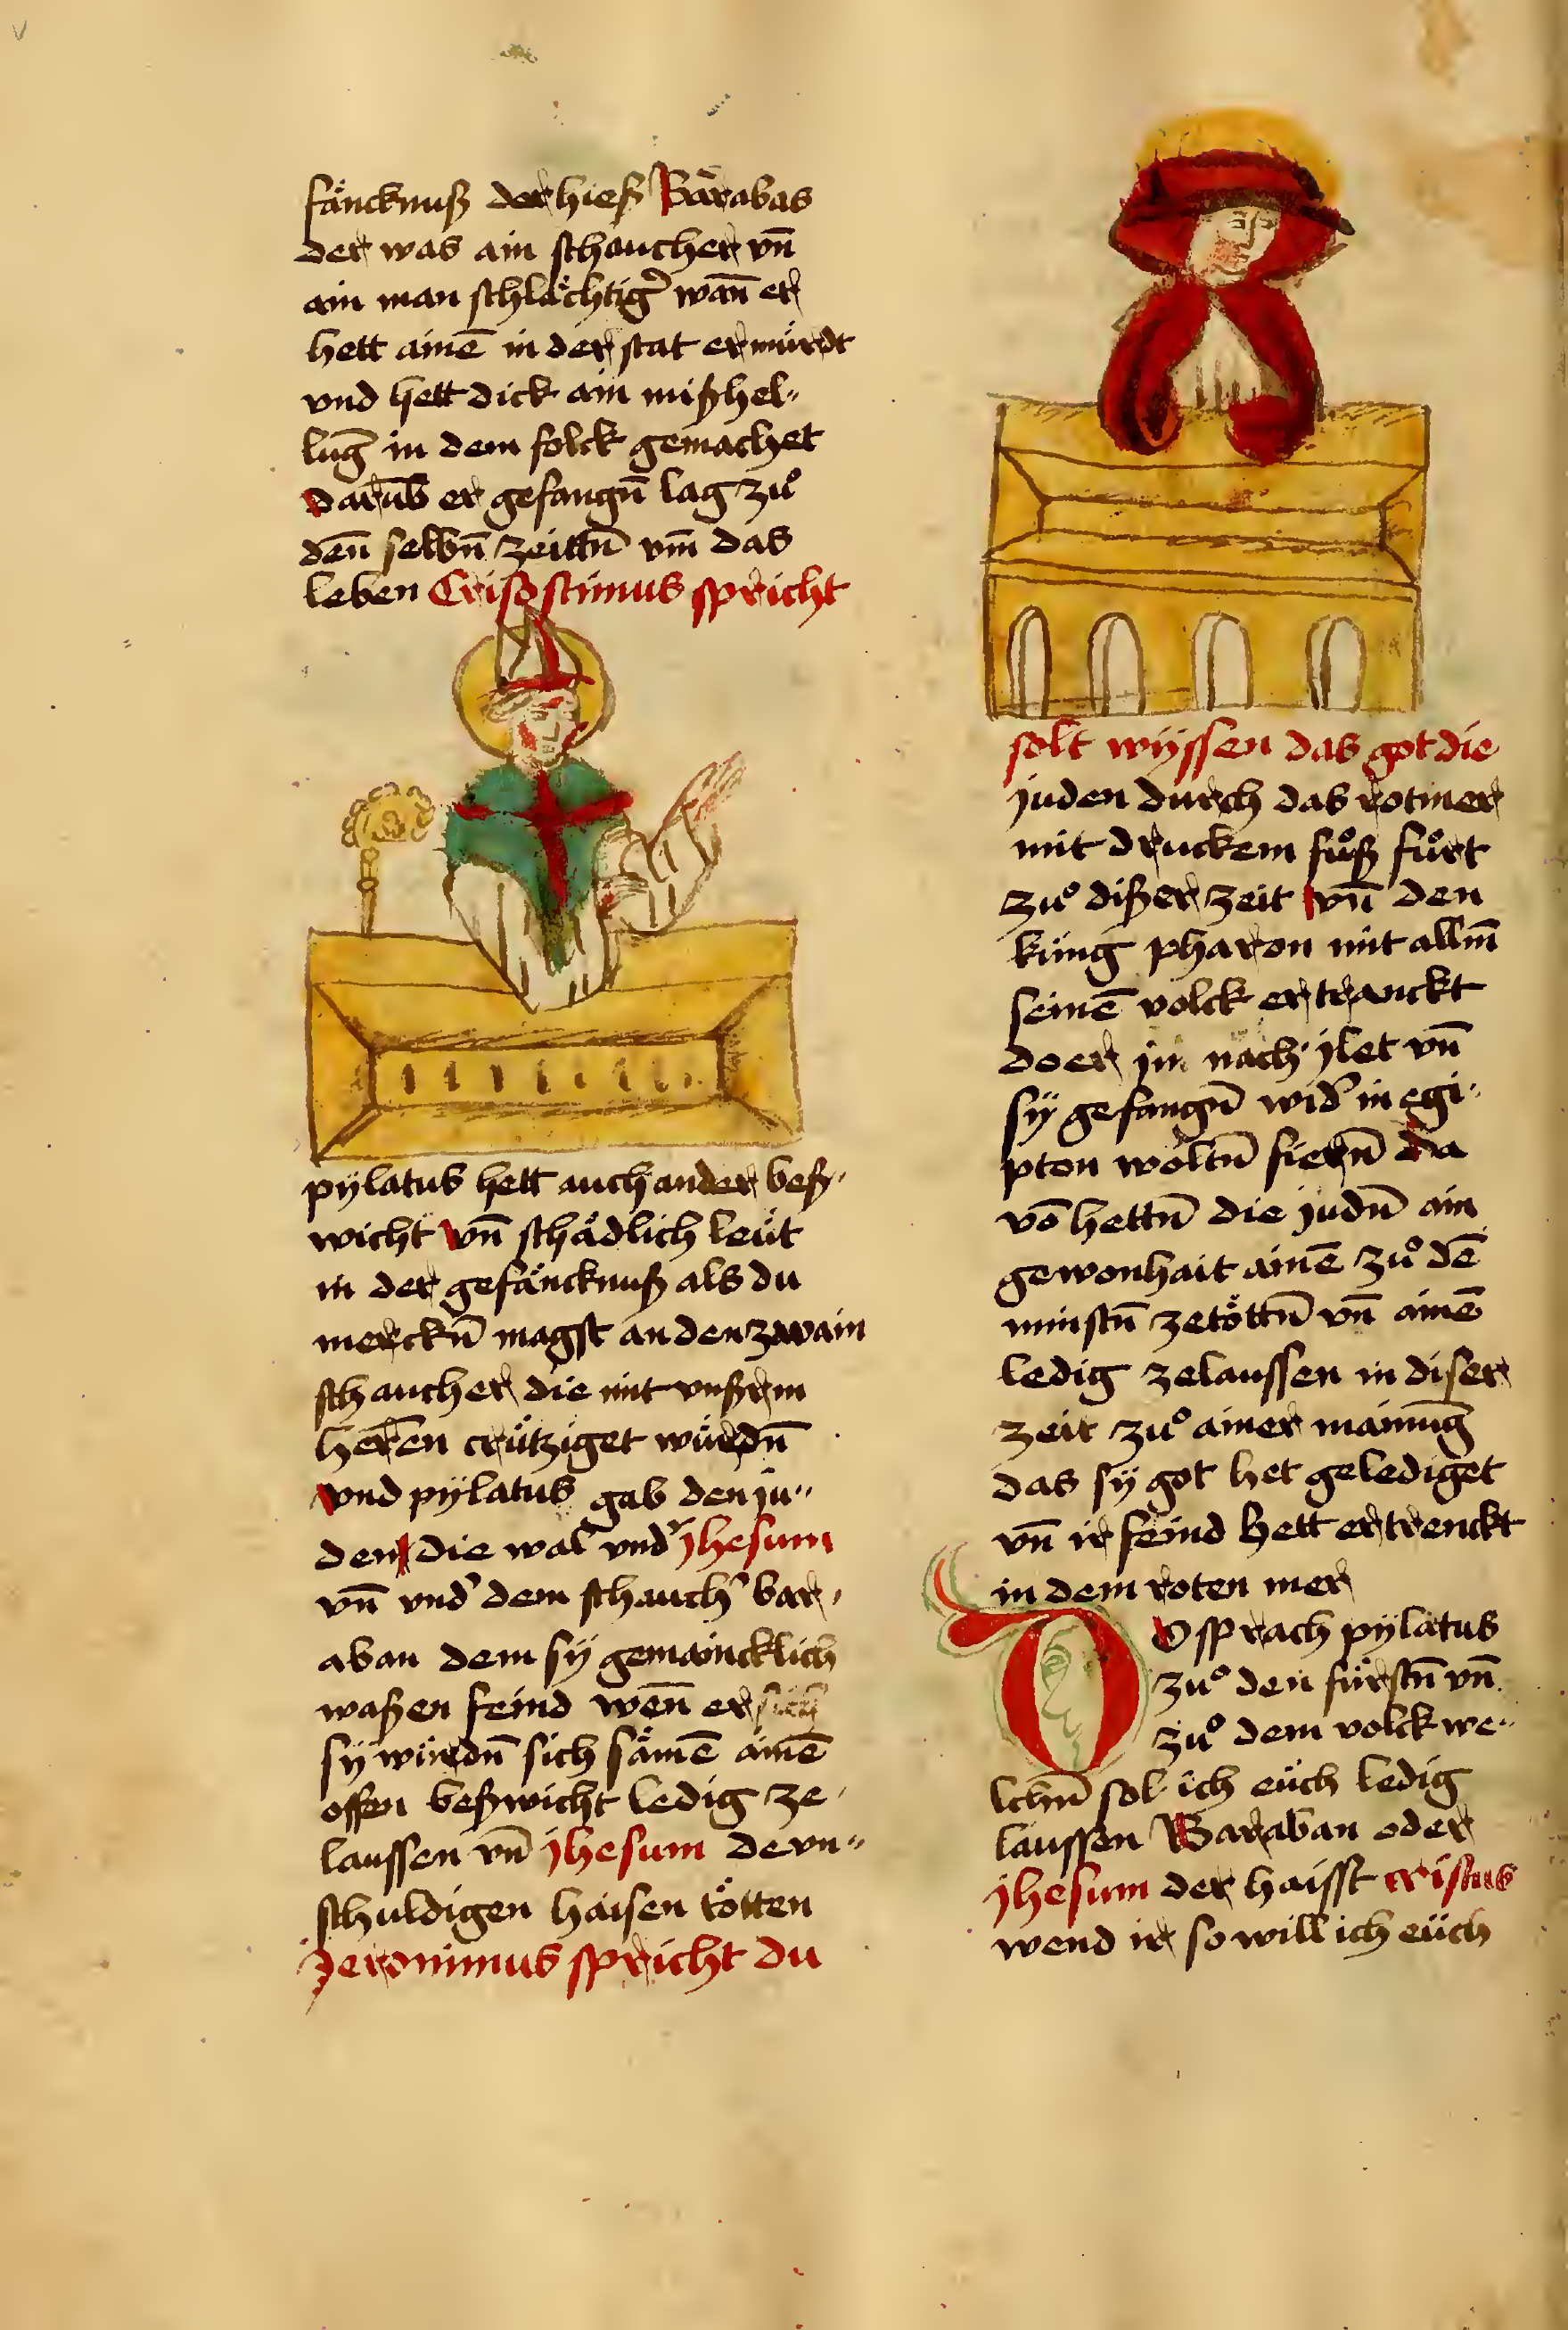 fäncknuß der hieß Barabas
der was ain schaucher vn̄
ain man schlächtig' wan̄ er
hett ainē in der stat ermürdt
vnd hett dick ain mißhel„
lūg in dem folck gemachet
darūb er gefangn̄ lag zuͦ
den̄ selbn̄ zeittn̄ vm̄ das
leben Crisostimus spricht
pÿlatus hett auch ander beß„
wicht vn̄ schädlich leüt
in der gefäncknuß als du
merckn̄ magst an den zwain
schaucher die mit vnßrm
herren crütziget würdn̄
vnd pÿlatus gab den ju„
den die wal vnd' jhesum
vn̄ vnd' dem schauch' bar„
aban dem sÿ gemaincklich
waßen feind wen̄ er
sÿ würdn̄ sich sämē ainē
offen beßwicht ledig ze„
laussen vn̄ jhesum den vn„
schuldigen haisen tötten
Jeronimus spricht du
solt wÿssen das got die
juden durch das rot mer
mit druckem fuͦß fuͦrt
zuͦ dißer zeit vn̄ den
küng pharon mit allm̄
seinē volck ertranckt
do er jm nach jlet vn̄
sÿ gefangn̄ wid' in egi„
pton woltn̄ fiern̄ da
vō hettn̄ die judn̄ ain
gewonhait ainē zuͦ dē
minstn̄ zetöttn̄ vn̄ ainē
ledig zelaussen in diser
zeit zuͦ ainer mainūg
das sÿ got het gelediget
vn̄ ir feind hett ertrenckt
in dem roten mer
DO sprach pÿlatus
zuͦ den fürstn̄ vn̄
zuͦ dem volck we„
lchn̄ sol ich eüch ledig
laussen Baraban oder
jhesum der haisst cristus
wend ir so will ich eüch